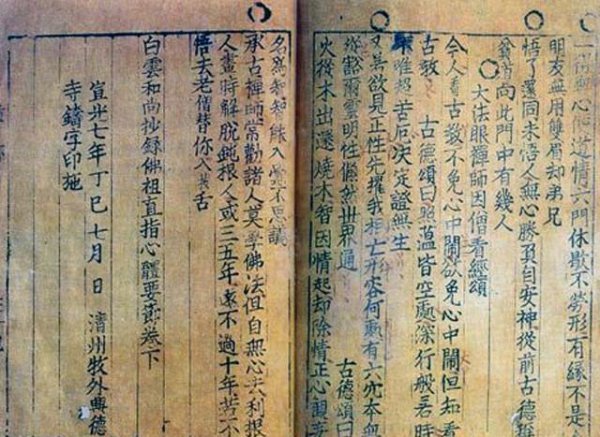 無心便道情六門休歇不勞形有緣不是
朋友無用雙眉却弟兄
悟了還同未悟人無心勝負自安神從前古德稱
貧道向此門中有幾人
大法眼禪師因僧看經頌
今人看古教不免心中鬧欲免心中鬧但知看
古教 古德頌曰照蘊皆空處深行般若時
唯超苦厄決定證無生
又若欲見正性先摧我相亡形容何處有六本無
縱豁爾雲明性儼然世界通 古德頌曰
火從木出還燒木智因情起却除情正心觀妄
名爲智智能入不思議
承古禪師常勸諸人莫學佛法但自無心去利根
人晝時解脫鈍根人或三五年遠不過十年若不
悟去老僧替你入拔舌
白雲和尚抄錄佛祖直指心體要節卷下
宣光七年丁巳七月 日 清州牧外興德
寺鑄字印施